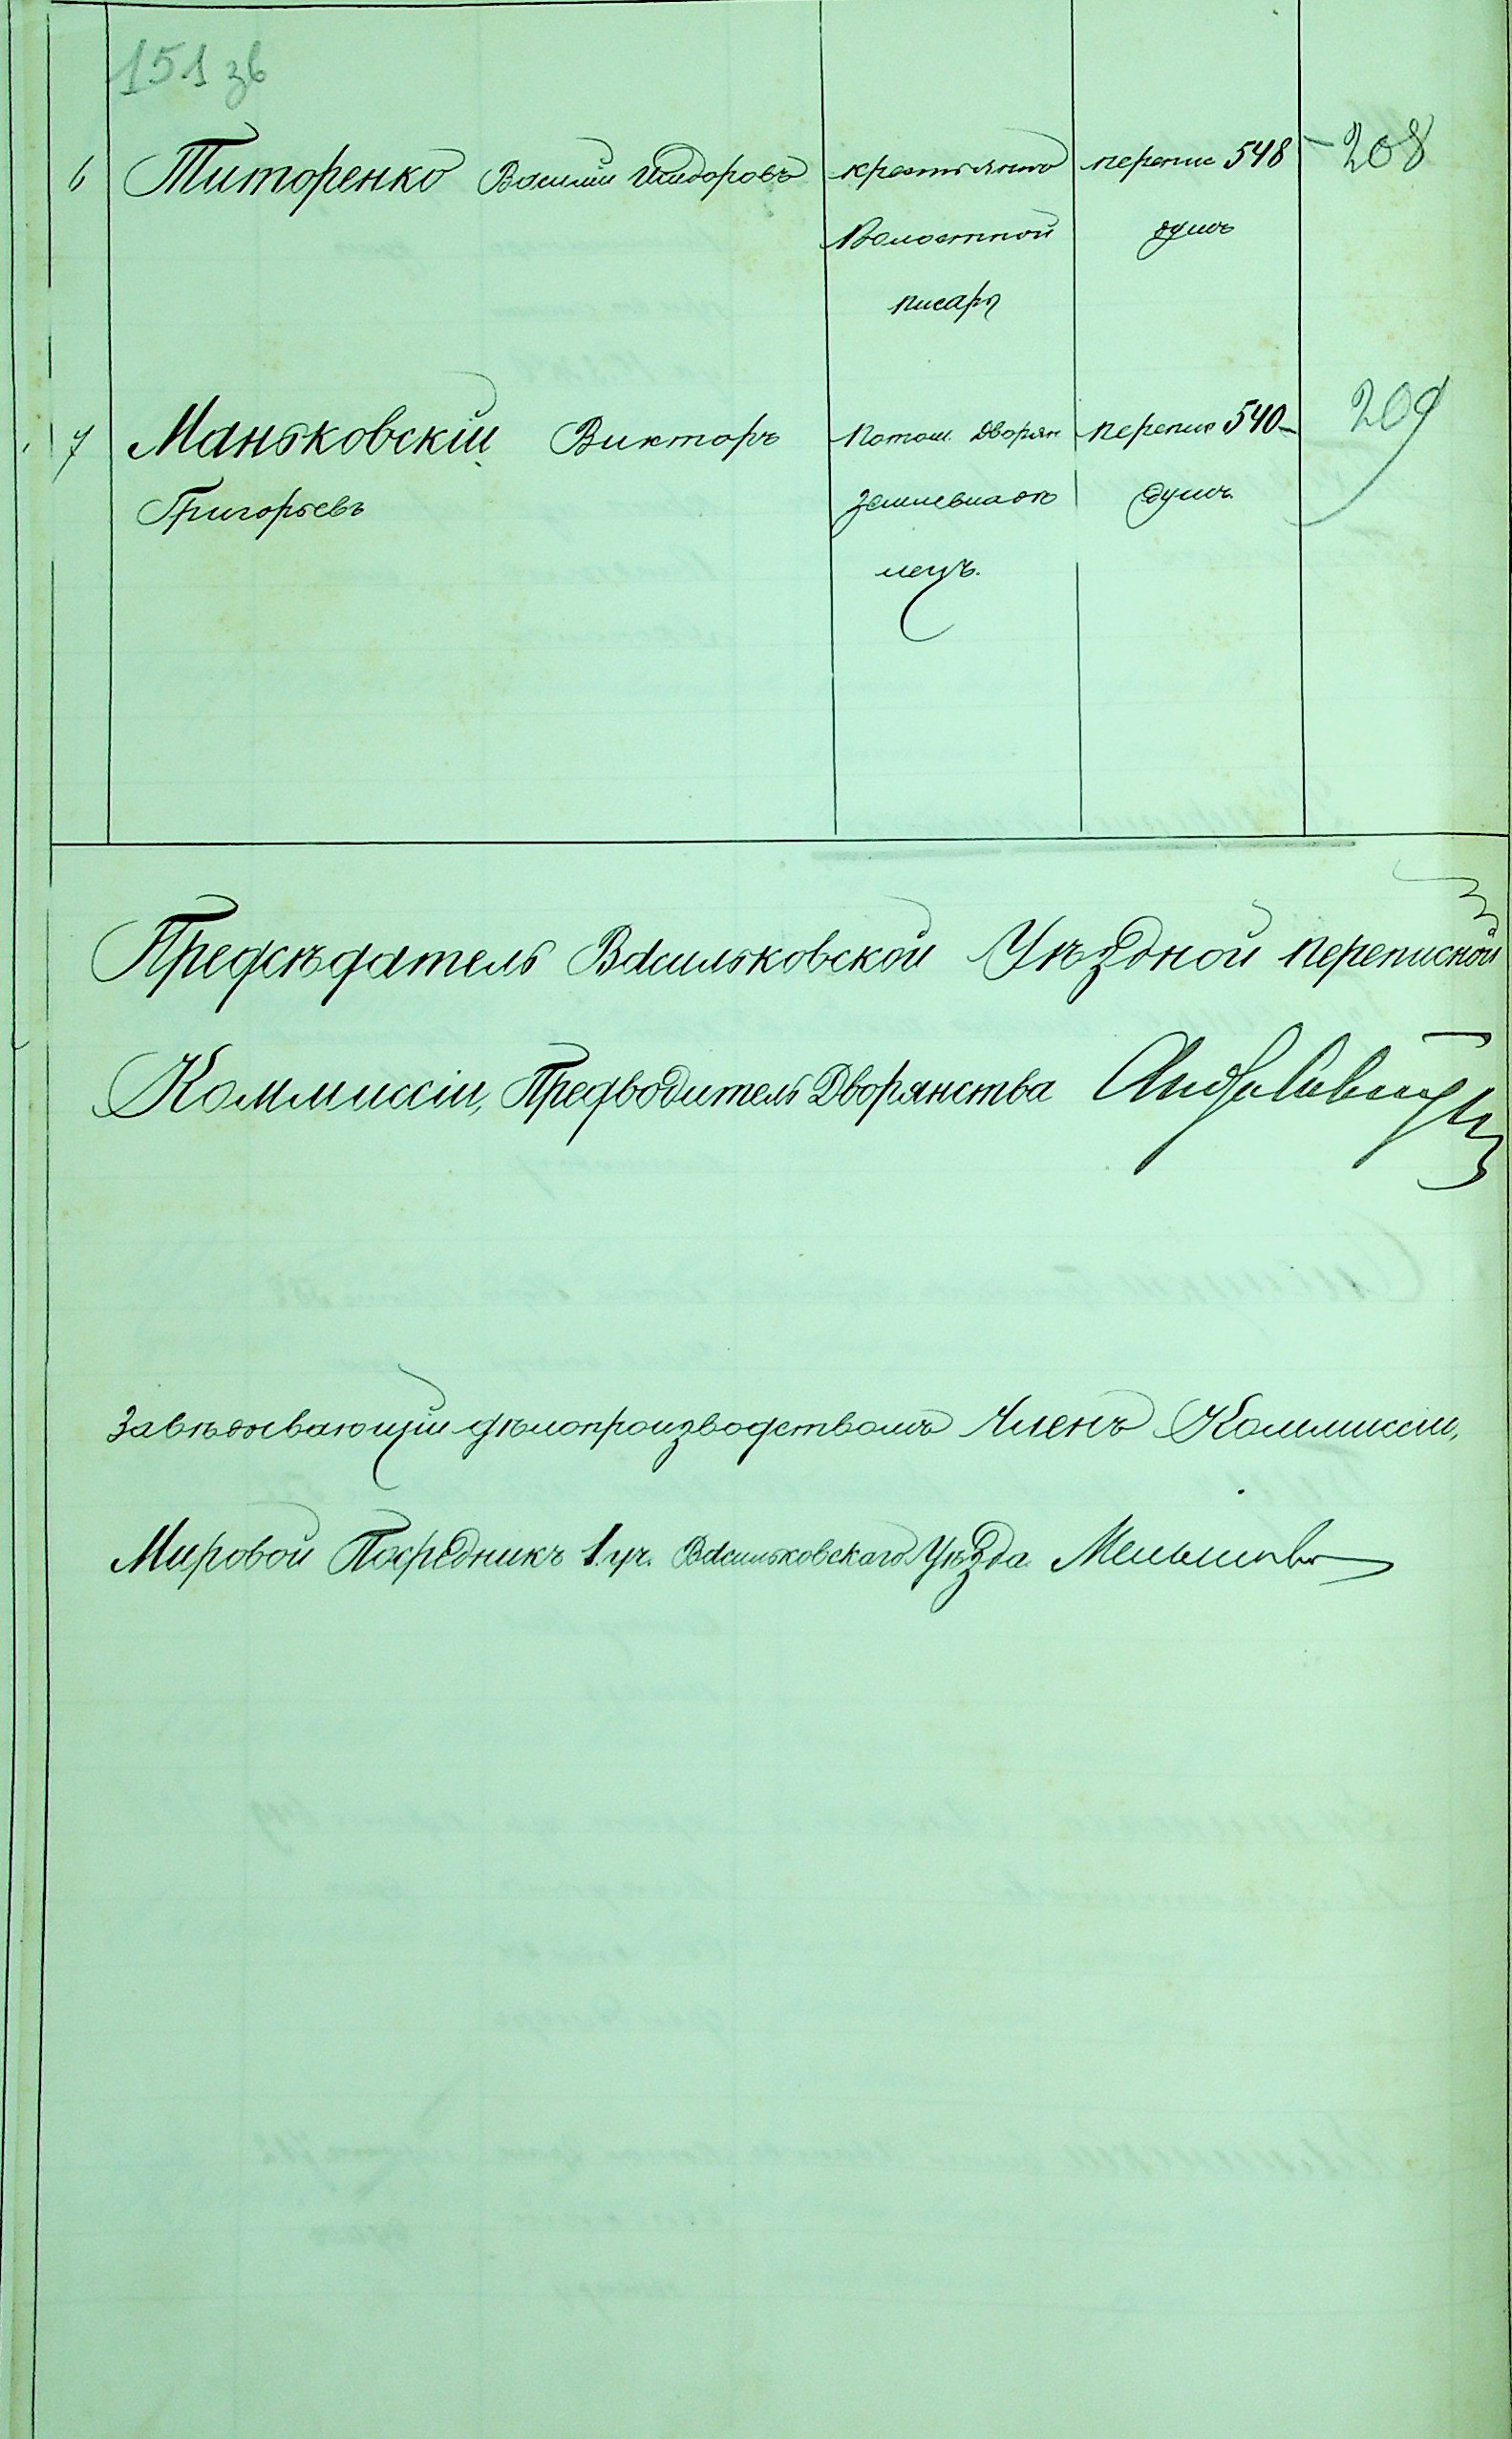 151 зв
6 Титоренко Василий Исидоровъ крестьянинъ перепис 548 - 208
Волостной душъ
писарь
7 Маньковскій Викторъ Потом. Дворян перепис 540 - 209
Григорьевъ землевладѣ душъ
лецъ.
Предсѣдатель Васильковской Уѣздной переписной
Коммиссіи, Предводитель Дворянства
Завѣдывающій дѣлопроизводствомъ Членъ Коммиссіи,
Мировой Посредникъ 1 уч. Васильковскаго Уѣзда